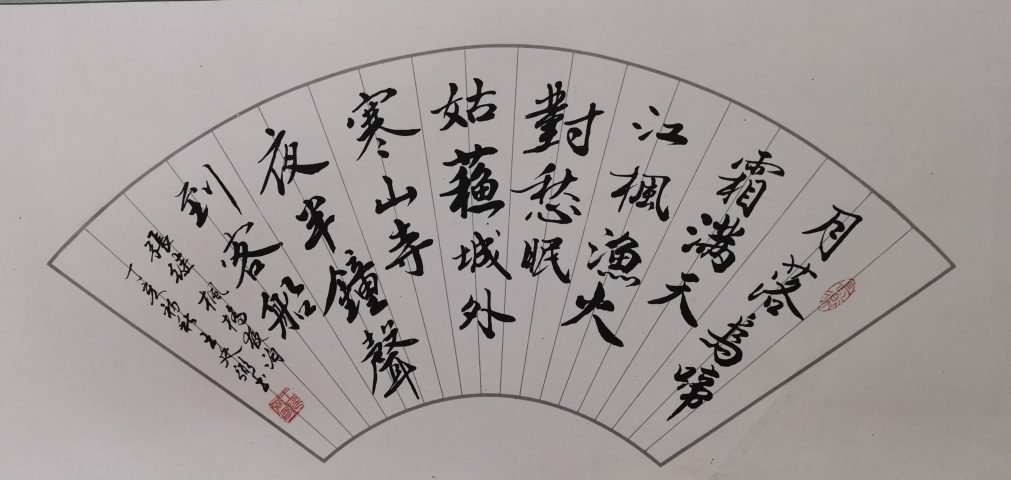 月落烏啼
霜满天
江楓漁火
對愁眠
姑蘓城外
寒山寺
夜半鐘聲
到客船
張継楓橋夜泊
丁亥初秋